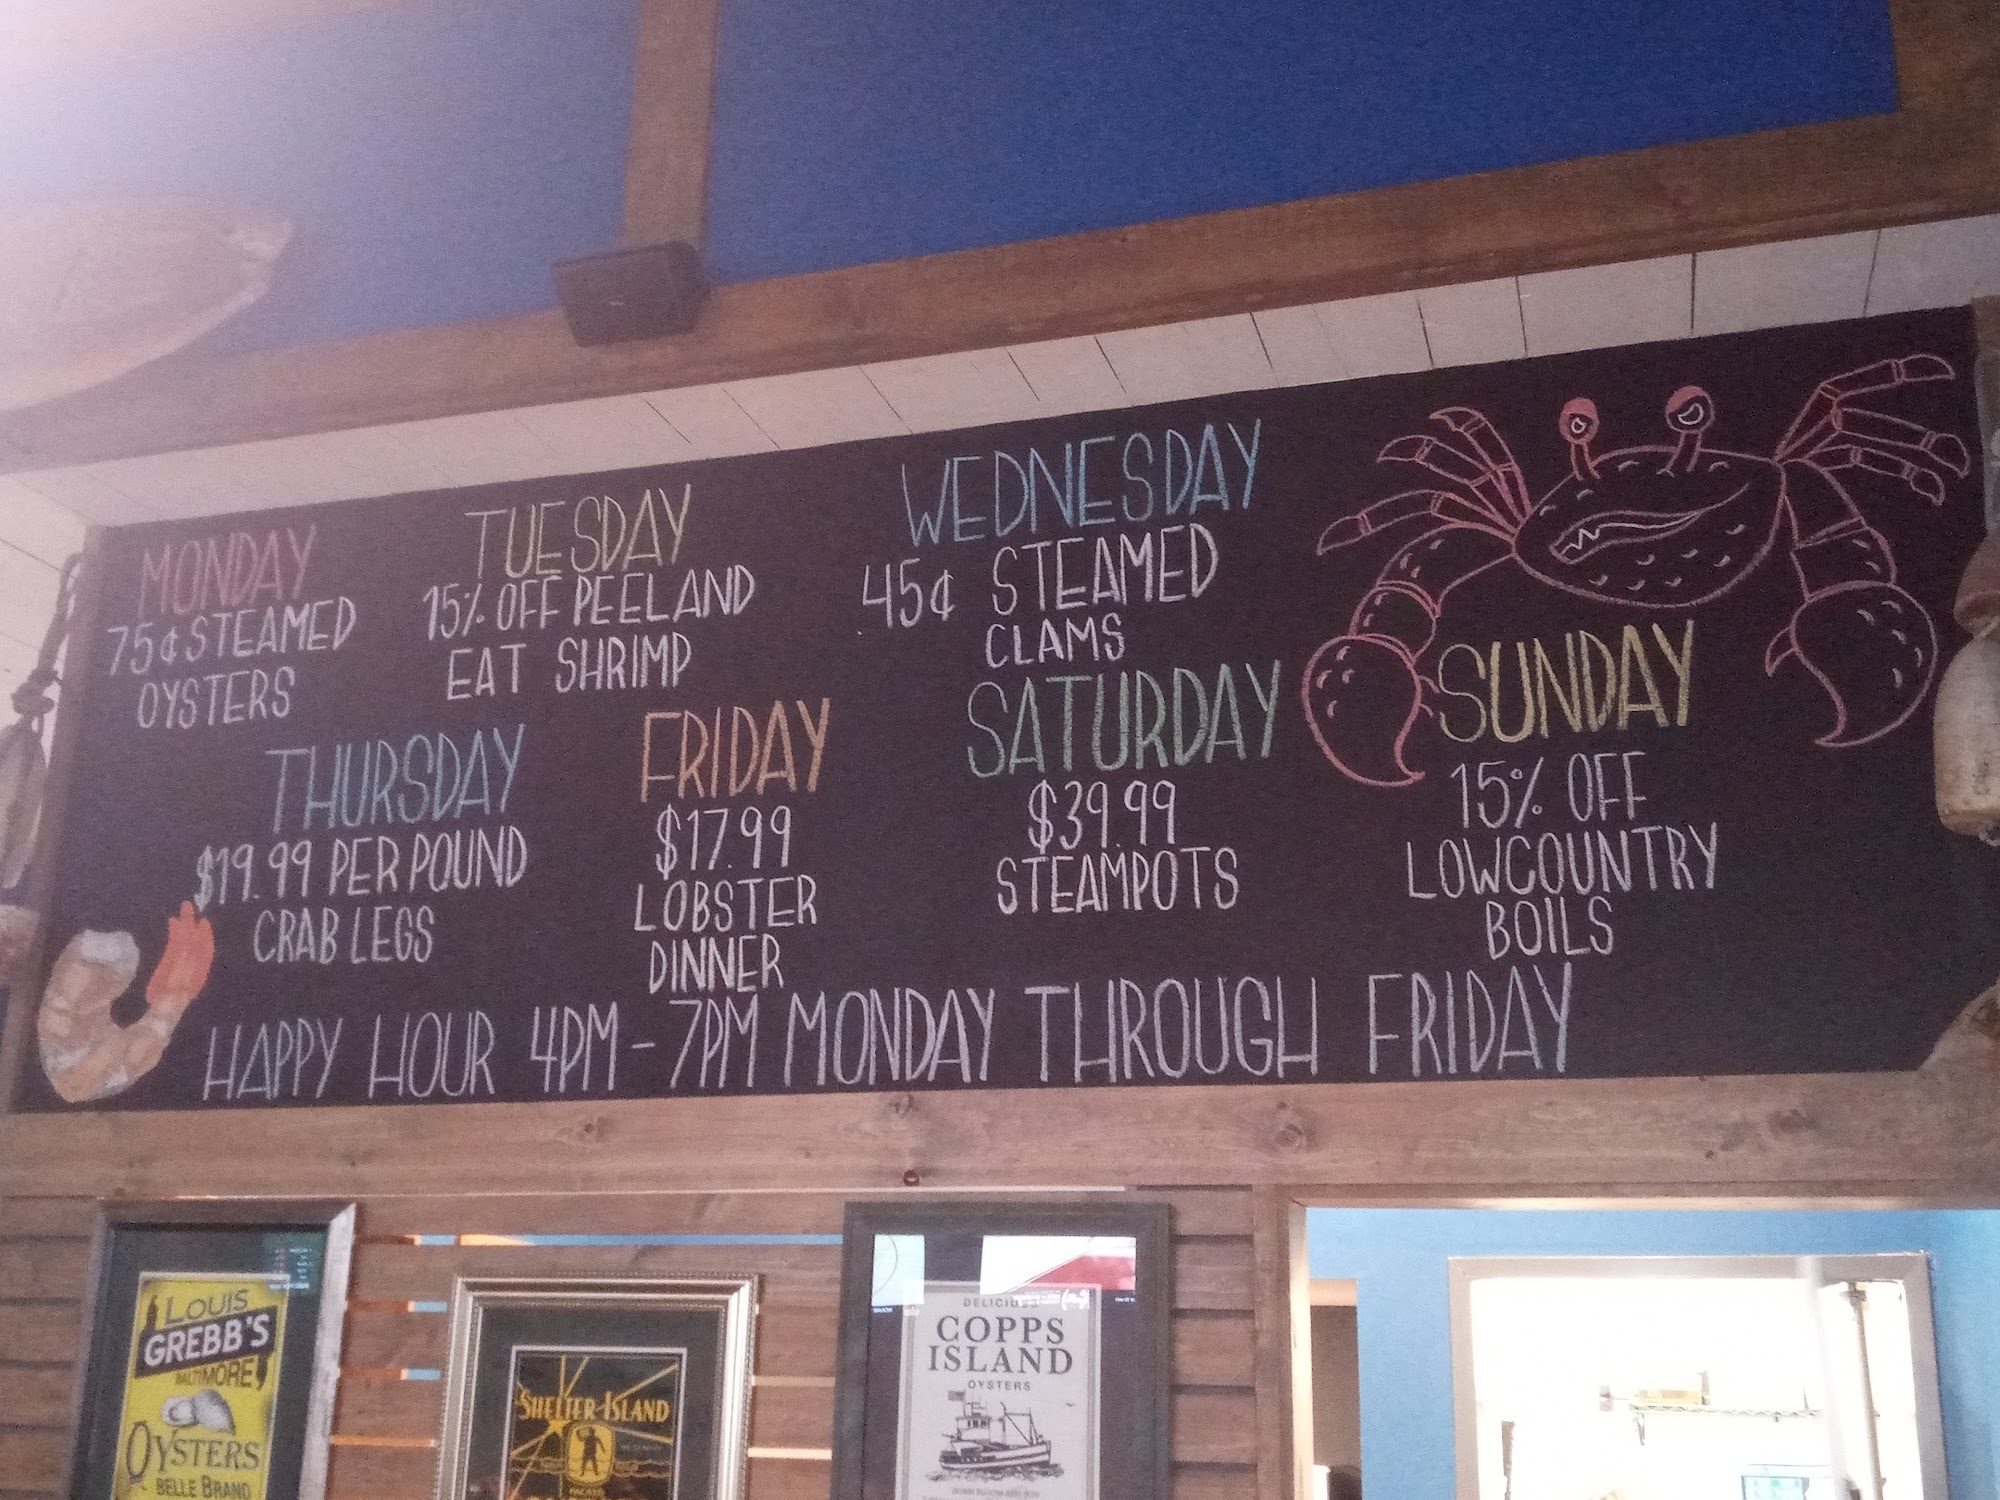 MONDAY
75¢ STEAMED
OYSTERS
TUESDAY
15% OFF PEEL AND
EAT SHRIMP
WEDNESDAY
.45¢ STEAMED
CLAMS
THURSDAY
$19.99 PER POUND
CRAB LEGS
FRIDAY
$17.99
LOBSTER
DINNER
SATURDAY
$39.99
STEAMPOTS
SUNDAY
15% OFF
LOWCOUNTRY
BOILS
HAPPY HOUR 4PM - 7PM MONDAY THROUGH FRIDAY
LOUIS
GREBB'S
BALTIMORE,
OYSTERS
BELLE BRAND
SHELTER ISLAND
DELICIOUS
COPPS
ISLAND
OYSTERS